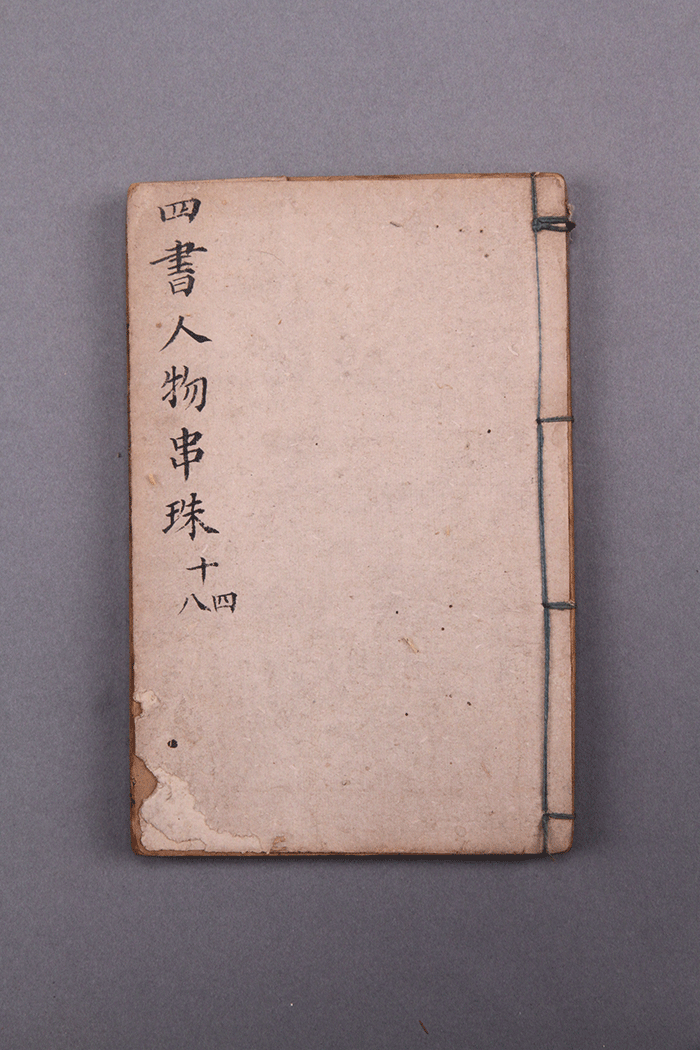 四書人物串珠
十
四
八